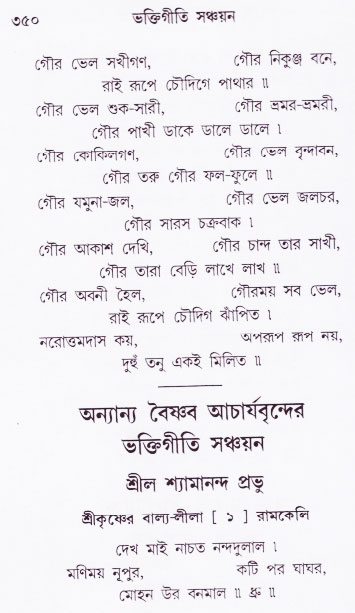 ৩৫০ ভক্তিগীতি সঞ্চয়ন
গৌর ভেল সখীগণ, গৌর নিকুঞ্জ বনে,
রাই রূপে চৌদিগে পাথার ॥
গৌর ভেল শুক-সারী, গৌর ভ্রমর-ভ্রমরী,
গৌর পাখী ডাকে ডালে ডালে ।
গৌর কোকিলগণ, গৌর ভেল বৃন্দাবন,
গৌর তরু গৌর ফল-ফুলে ॥
গৌর যমুনা-জল, গৌর ভেল জলচর,
গৌর সারস চক্রবাক ।
গৌর আকাশ দেখি, গৌর চান্দ তার সাখী,
গৌর তারা বেড়ি লাখে লাখ ॥
গৌর অবনী হৈল, গৌরময় সব ভেল,
রাই রূপে চৌদিগ ঝাঁপিত ।
নরোত্তমদাস কয়, অপরূপ রূপ নয়,
দুহুঁ তনু একই মিলিত ॥
অন্যান্য বৈষ্ণব আচার্যবৃন্দের
ভক্তিগীতি সঞ্চয়ন
শ্রীল শ্যামানন্দ প্রভু
শ্রীকৃষ্ণের বাল্য-লীলা [ ১ ] রামকেলি
দেখ মাই নাচত নন্দদুলাল ।
মণিময় নূপুর, কটি পর ঘাঘর,
মোহন উর বনমাল ॥ ধ্রু ॥